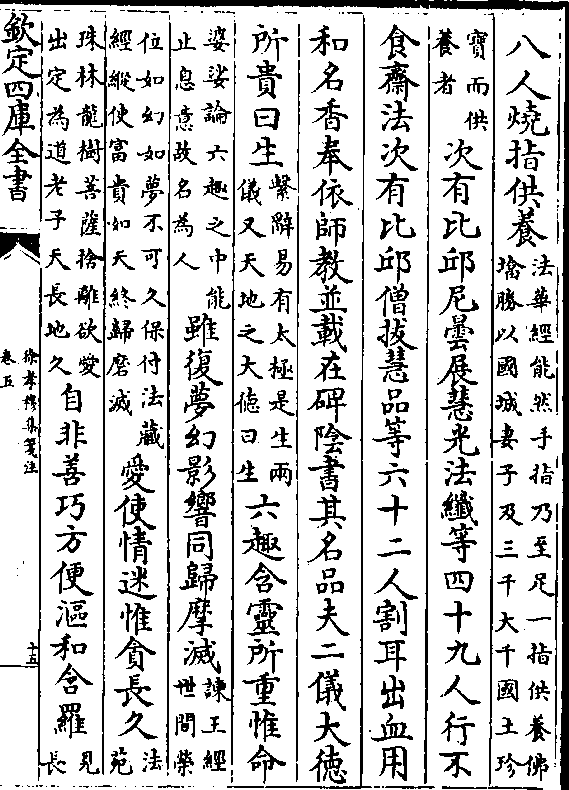 八人燒指供養法華經能然手指乃至足一指供養佛墖勝以國城妻子及三千大千國土珍
寶而供養者次有比邱尼曇展慧光法纖等四十九人行不
食齋法次有比邱僧拔慧品等六十二人割耳出血用
和名香奉依師教並載在碑陰書其名品夫二儀大徳
所貴曰生繫辭易有太極是生兩儀又天地之大徳曰生六趣含靈所重惟命
婆娑論六趣之中能止息意故名為人雖復夢幻影響同歸摩滅諫王經世間榮
位如幻如夢不可久保付法藏經縱使富貴如天終歸磨滅愛使情迷惟貪長久法苑
珠林龍樹菩薩捨離欲愛出定為道老子天長地久自非善巧方便漚和含羅見長
欽定四庫全書
徐孝穆集箋注
卷五
十五